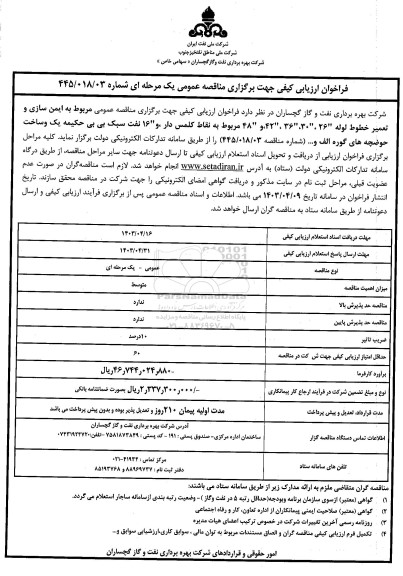 شرکت ملی نفت ایران
شرکت ملی مناطق نفتخیز جنوب
شرکت بهره برداری نفت و گاز گچساران « سهامی خاص »
فراخوان ارزیابی کیفی جهت برگزاری مناقصه عمومی یک مرحله ای شماره ۴۴۵/۰۱۸/۰۳
شرکت بهره برداری نفت و گاز گچساران در نظر دارد فراخوان ارزیابی کیفی جهت برگزاری مناقصه عمومی مربوط به ایمن سازی و
تعمیر خطوط لوله "۲۶ ،"۳۰، "۳۶ ،"۴۲،و "۴۸ مربوط به نقاط کلمس دار ،و"۱۶ نفت سبک بی بی حکیمه یک وساخت
حوضچه های گوره الف و... (شماره مناقصه ۴۴۵/۰۱۸/۰۳) را از طریق سامانه تدارکات الکترونیکی دولت برگزار نماید. کلیه مراحل
برگزاری فراخوان ارزیابی از دریافت و تحویل اسناد استعلام ارزیابی کیفی تا ارسال دعوتنامه جهت سایر مراحل مناقصه، از طریق درگاه
سامانه تدارکات الکترونیکی دولت (ستاد) به آدرس www.setadiran.ir انجام خواهد شد. لازم است مناقصه‌گران در صورت عدم
عضویت قبلی، مراحل ثبت نام در سایت مذکور و دریافت گواهی امضای الکترونیکی را جهت شرکت در مناقصه محقق سازند. تاریخ
انتشار فراخوان در سامانه تاریخ ۱۴۰۳/۰۴/۰۹ می باشد. اطلاعات و اسناد مناقصه عمومی پس از برگزاری فرآیند ارزیابی کیفی و ارسال
دعوتنامه از طریق سامانه ستاد به مناقصه گران ارسال خواهد شد.
مهلت دریافت اسناد استعلام ارزیابی کیفی ۱۴۰۳/۰۴/۱۶
مهلت ارسال پاسخ استعلام ارزیابی کیفی ۱۴۰۳/۰۴/۳۱
نوع مناقصه عمومی - یک مرحله ای
میزان اهمیت مناقصه متوسط
مناقصه حد پذیرش بالا ندارد
مناقصه حد پذیرش پایین ندارد
ضریب تاثیر ۱۰درصد
حداقل امتیاز ارزیابی کیفی جهت ش کت در مناقصه ۶۰
برآورد کارفرما ۴۶٫۷۴۴٫۰۲۴٫۸۸۰-ریال
نوع و مبلغ تضمین شرکت در فرآیند ارجاع کار پیمانکاری ۲٫۳۳۷٫۲۰۰٫۰۰۰/-ریال بصورت ضمانتنامه بانکی
مدت قرارداد، تعدیل و پیش پرداخت مدت اولیه پیمان ۲۱۰روز و تعدیل پذیر بوده و بدون پیش پرداخت می باشد
اطلاعات تماس دستگاه مناقصه گزار آدرس شرکت بهره برداری نفت و گاز گچساران
ساختمان اداره مرکزی- صندوق پستی : ۱۹۱ - کد پستی : ۷۵۸۱۸۷۳۸۴۹ -تلفن:
تلفن های سامانه ستاد مرکز تماس : ۴۱۹۳۴-۰۲۱
دفتر ثبت نام : ۸۸۹۶۹۷۳۷ و ۸۵۱۹۳۷۶۸
مناقصه گران متقاضی ملزم به ارائه مدارک زیر از طریق سامانه ستاد می باشند:
۱) گواهی (معتبر) ازسوی سازمان برنامه وبودجه(حداقل رتبه ۵ در نفت وگاز) - وضعیت رتبه بندی ازسامانه ساجار استعلام می گردد.
۲) گواهی (معتبر) صلاحیت ایمنی پیمانکاران از اداره تعاون، کار و رفاه اجتماعی
۳) روزنامه رسمی آخرین تغییرات شرکت در خصوص ترکیب اعضای هیات مدیره
۴) تکمیل فرم ارزیابی کیفی مناقصه گران و الصاق مستندات مربوط به توان مالی ، سوابق کاری،ارزشیابی سوابق و...
امور حقوقی و قراردادهای شرکت بهره برداری نفت و گاز گچساران